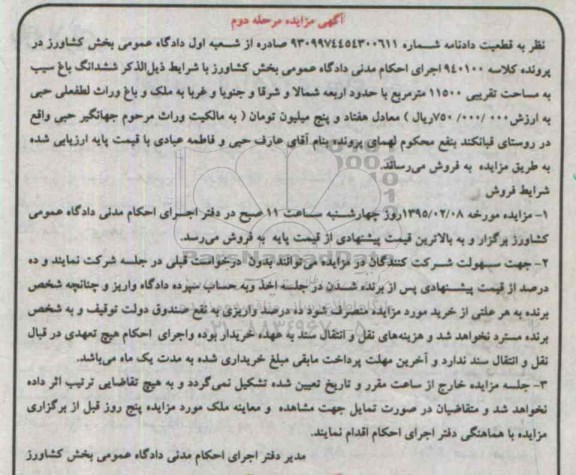 آگهی مزایده مرحله دوم
نظر به قطعیت دادنامه شماره ۹۳۰۹۹۷۴۴۵۴۳۰۰۶۱۱ صادره از شعبه اول دادگاه عمومی بخش کشاورز در
پرونده کلاسه ۹۴۰۱۰۰ اجرای احکام مدنی دادگاه عمومی بخش کشاورز با شرایط ذیل‌الذکر ششدانگ باغ سیب
به مساحت تقریبی ۱۱۵۰۰ مترمربع با حدود اربعه شمالا و شرقا و جنوبا و غربا به ملک و باغ وراث لطفعلی حبی
به ارزش ۷۵۰/۰۰۰/۰۰۰ریال ) معادل هفتاد و پنج میلیون تومان ( به مالکیت وراث مرحوم جهانگیر حبی واقع
در روستای قبانکند بنفع محکوم لهمای پرونده بنام آقای عارف حبی و فاطمه عبادی با قیمت پایه ارزیابی شده
به طریق مزایده به فروش می‌رساند
شرایط فروش
۱- مزایده مورخه ۱۳۹۵/۰۲/۰۸روز چهارشنبه ساعت ۱۱ صبح در دفتر اجرای احکام مدنی دادگاه عمومی
کشاورز برگزار و به بالاترین قیمت پیشنهادی از قیمت پایه به فروش می‌رسد.
۲- جهت سهولت شرکت کنندگان در مزایده می‌توانند بدون درخواست قبلی در جلسه شرکت نمایند و ده
درصد از قیمت پیشنهادی پس از برنده شدن در جلسه اخذ وبه حساب سپرده دادگاه واریز و چنانچه شخص
برنده به هر علتی از خرید مورد مزایده منصرف شود ده درصد واریزی به نفع صندوق دولت توقیف و به شخص
برنده مسترد نخواهد شد و هزینه‌های نقل و انتقال سند به عهده خریدار بوده واجرای احکام هیچ تعهدی در قبال
نقل و انتقال سند ندارد و آخرین مهلت پرداخت مابقی مبلغ خریداری شده به مدت یک ماه می‌باشد.
۳- جلسه مزایده خارج از ساعت مقرر و تاریخ تعیین شده تشکیل نمی‌گردد و به هیچ تقاضایی ترتیب اثر داده
نخواهد شد و متقاضیان در صورت تمایل جهت مشاهده و معاینه ملک مورد مزایده پنج روز قبل از برگزاری
مزایده با هماهنگی دفتر اجرای احکام اقدام نمایند.
مدیر دفتر اجرای احکام مدنی دادگاه عمومی بخش کشاورز